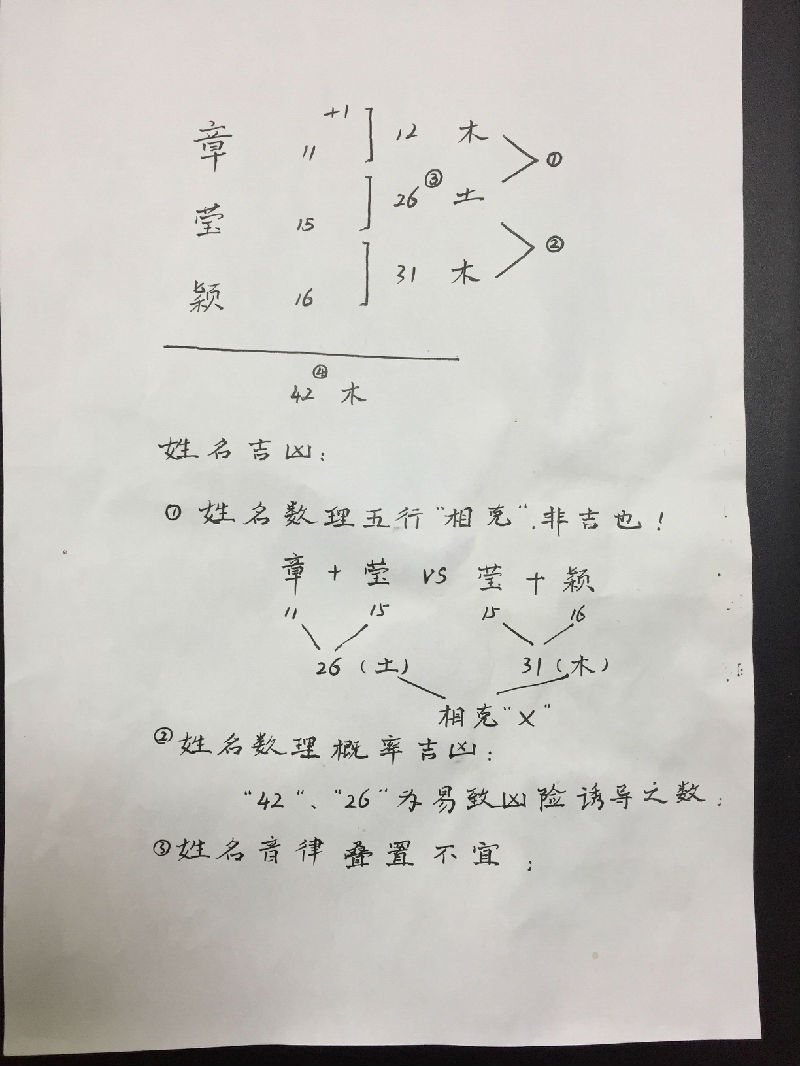 +1
章 11 12 木 ①
26③ 土
莹 15 ②
31 木
颖 16
42④ 木
姓名吉凶：
① 姓名数理五行“相克”，非吉也！
章 + 莹 VS 莹 + 颖
11 15 15 16
26（土） 31（木）
相克“X”
② 姓名数理概率吉凶：
“42”、“26”为易致凶险诱导之数；
③ 姓名音律叠置不宜；